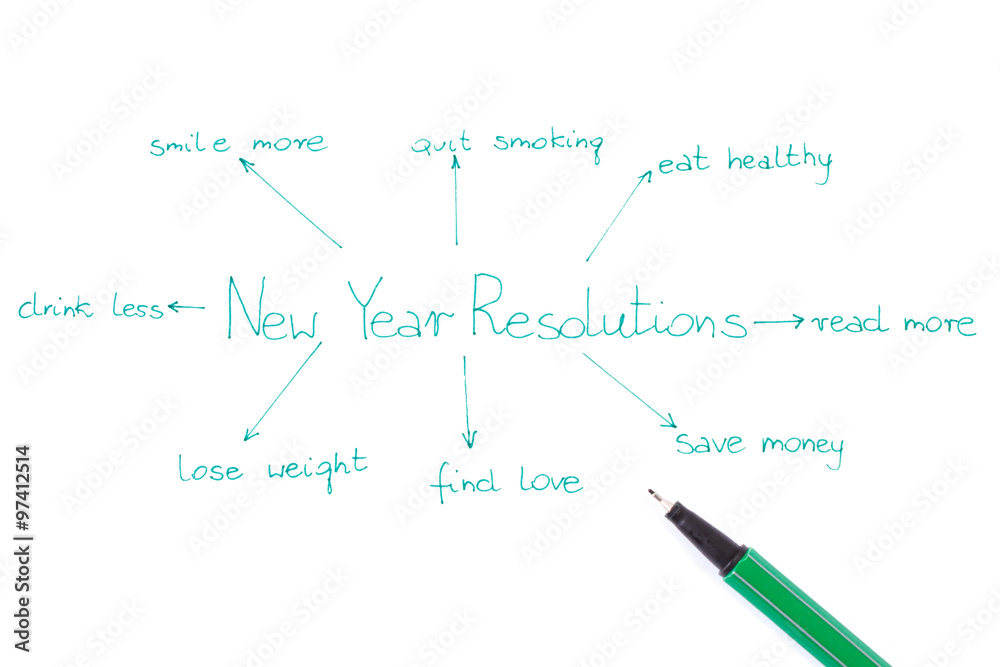 smile more
quit smoking
eat healthy
drink less
New Year Resolutions
read more
lose weight
find love
save money
Adobe Stock | #97412514